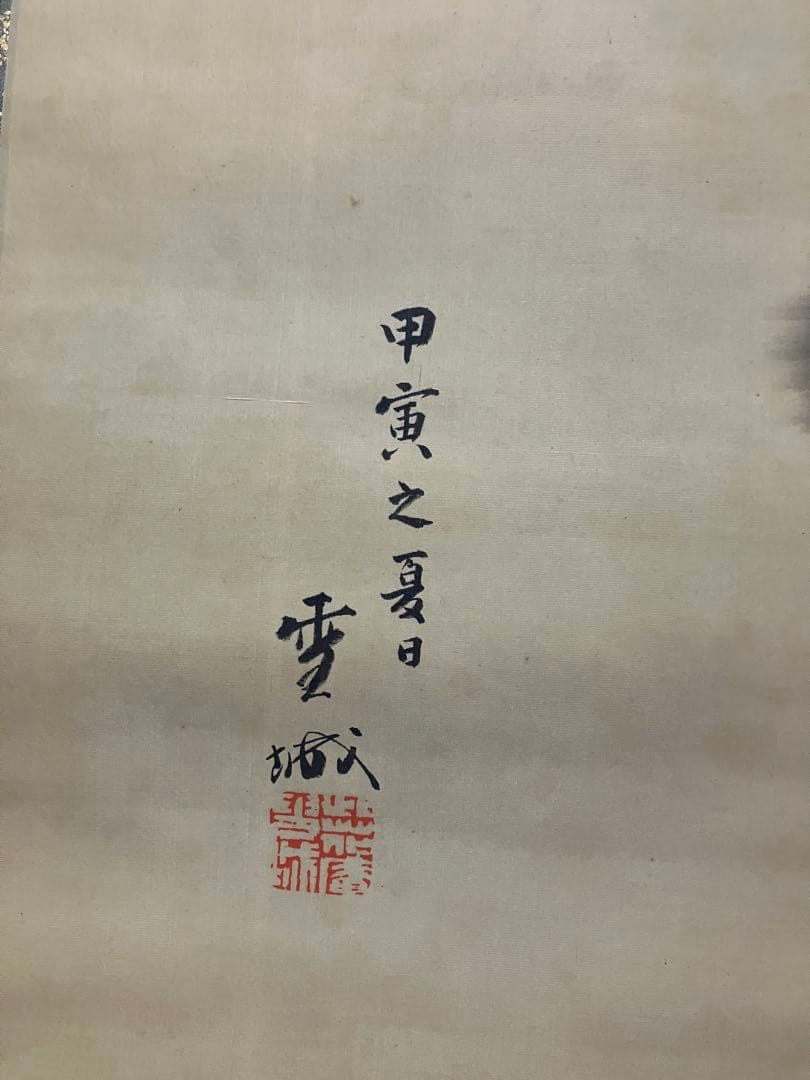 甲寅之夏日
雪城